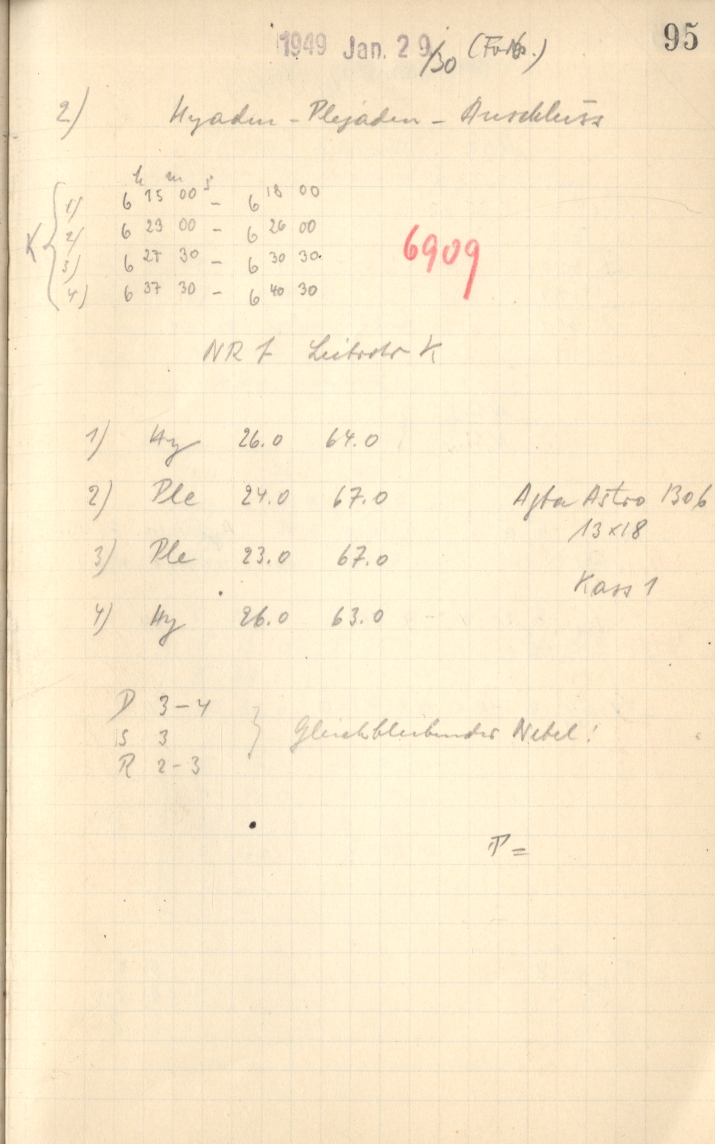 95
1949 Jan. 29/30
2) Hyaden - Plejaden - Anschluss
h m s
K { 1) 6 15 00 - 6 18 00
2) 6 23 00 - 6 26 00
3) 6 27 30 - 6 30 30
4) 6 37 30 - 6 40 30
6909
NR f Leitrohr K
1) Hy 26.0 64.0
2) Ple 24.0 67.0 Agfa Astro
13x18
3) Ple 23.0 67.0
Kass 1
4) Hy 26.0 63.0
D 3-4
S 3 } Gleichbleibender Nebel!
R 2-3
T =